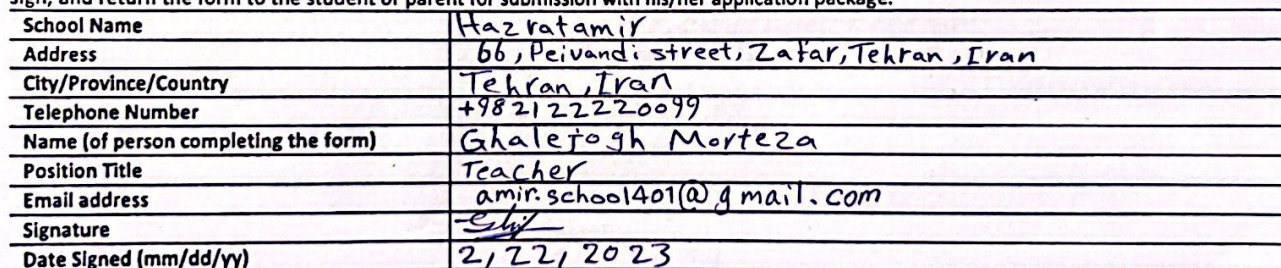 sign, and return the form to the student or parent for submission with his/her application package.
School Name Hazratamir
Address 66, Peivandi street, Zafar, Tehran, Iran
City/Province/Country Tehran, Iran
Telephone Number +982122220099
Name (of person completing the form) Ghalejogh Morteza
Position Title Teacher
Email address amir.school401@gmail.com
Signature
Date Signed (mm/dd/yy) 2/22/2023